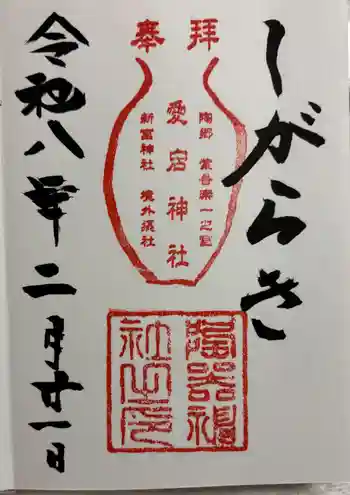 奉拝
しがらき
陶郷 紫香楽一之宮
愛宕神社
新宮神社 境外摂社
陶器祖社之印
令和八年二月廿一日